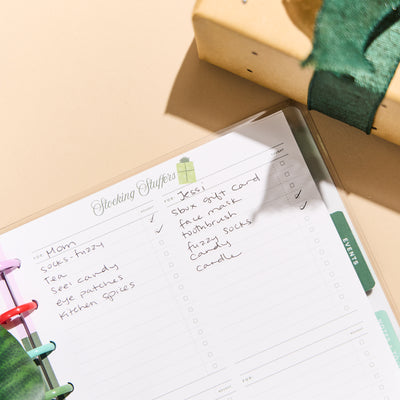 Stocking Stuffers
FOR: Mom
socks-fuzzy
Tea
see's candy
eye patches
kitchen spices
FOR: Jessi
sbux gift card
face mask
toothbrush
fuzzy socks
candy
candle
FOR
EVENTS